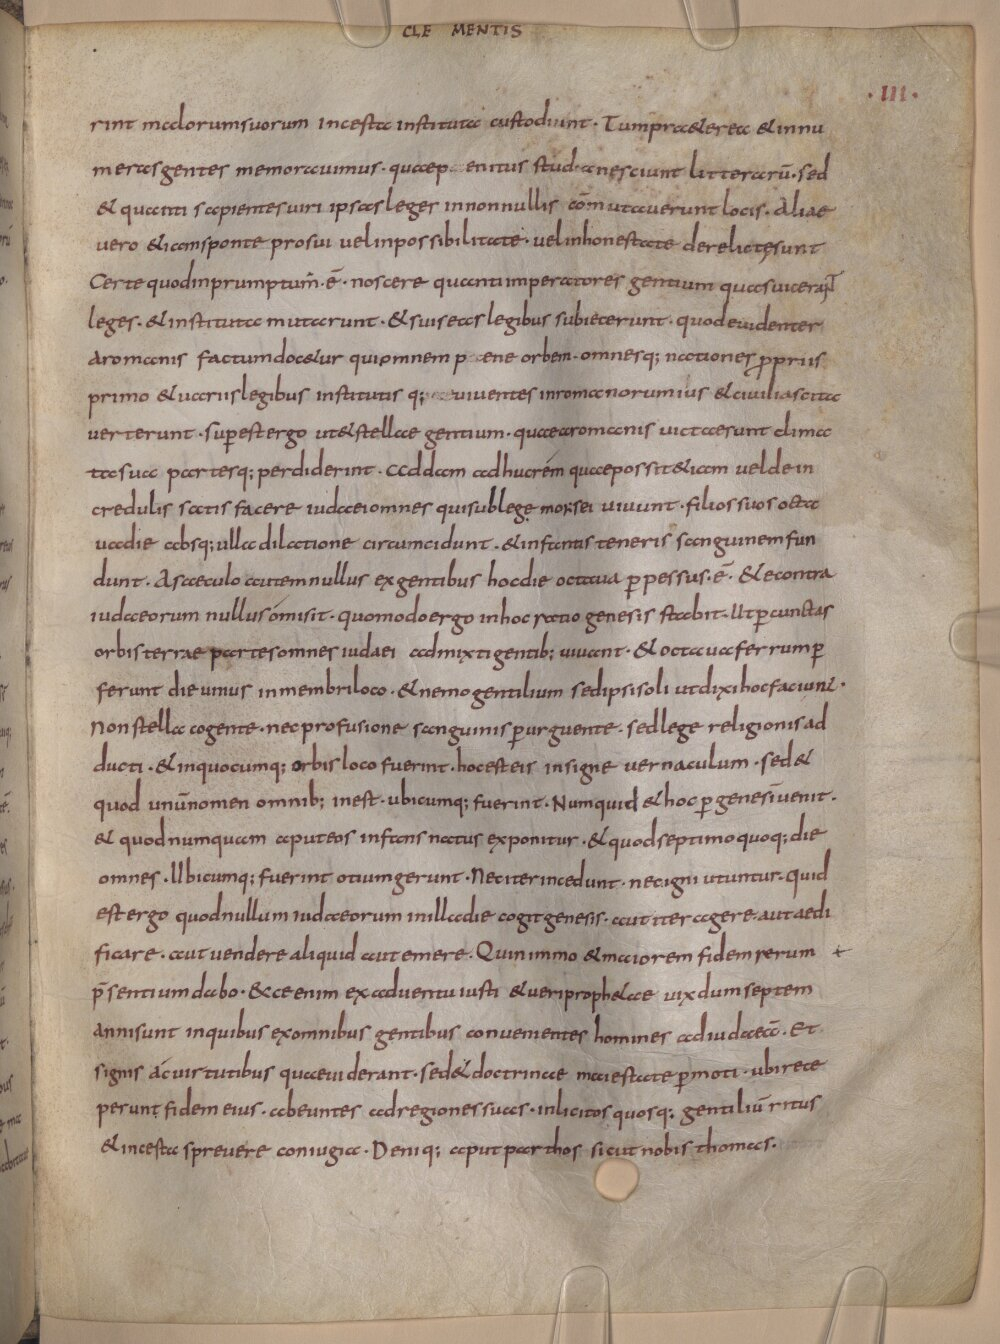 CLE MENTIS
· III ·
rint malorum suorum incesta instituta custodiunt · Tum praeterea & innu
meras gentes memoravimus · quae penitus studia nesciunt litterarū · sed
& quanti sapientes viri ipsas leges in nonnullis cōmutaverunt locis · Aliae
vero & iam sponte pro sui vel inpossibilitate · vel inhonestate derelictę sunt
Certe quod in prumptum · ē · noscere quanti imperatores gentium quas vicerant
leges · & instituta mutarunt · & suis eas legibus subiecerunt · quod evidenter
a romanis factum doc&ur qui omnem pene orbem · omnesq; nationes ꝓpriis
primo & variis legibus institutis q; viventes in romanorum ius & civilia scita
verterunt · suꝑest ergo ut & stellae gentium · quae a romanis victae sunt clima
ta sua partesq; perdiderint · Addam adhuc rém quae possit & iam vel de in
credulis satis facere iudaei omnes qui sub lege mo&sei vivunt · filios suos octa
va die absq; ulla dilatione circumcidunt · & infantis teneris sanguinem fun
dunt · A saeculo autem nullus ex gentibus hoc die octava ꝑpessus · ē · & econtra
iudaeorum nullus ómisit · quomodo ergo in hoc ratio genesis stabit · Ut ꝑ cunctas
orbis terrae partes omnes iudaei admixti gentib; vivant · & octava ferrum ꝑ
ferunt die unius in membri loco · & nemo gentilium sed ipsi soli ut dixi hoc faciunt ·
Non stella cogente · nec profusione sanguinis ꝑurguente · sed lege religionis ad
ducti · & in quocumq; orbis loco fuerint · hoc est eis insigne vernaculum · sed &
quod unū nomen omnib; inest · ubicumq; fuerint · Numquid & hoc ꝑ genesī venit ·
& quod numquam aput eos infans natus exponitur · & quod septimo quoq; die
omnes · Ubicumq; fuerint otium gerunt · Nec iter incedunt · nec igni utuntur · quid
est ergo quod nullum iudaeorum in illa die cogit genesis · aut iter agere aut aedi
ficare · aut vendere aliquid aut emere · Quin immo & maiorem fidem rerum +
p̄sentium dabo · Ecce enim ex adventu iusti & veri proph&ae vix dum septem
anni sunt in quibus ex omnibus gentibus convenientes homines ad iudaeā · Et
signis ác virtutibus quae viderant · sed & doctrinae maiestate ꝑmoti · ubi rece
perunt fidem eius · abeuntes ad regiones suas · inlicitos quosq; gentiliū ritus
& incesta sprevere coniugia · Deniq; aput parthos sicut nobis thomas ·